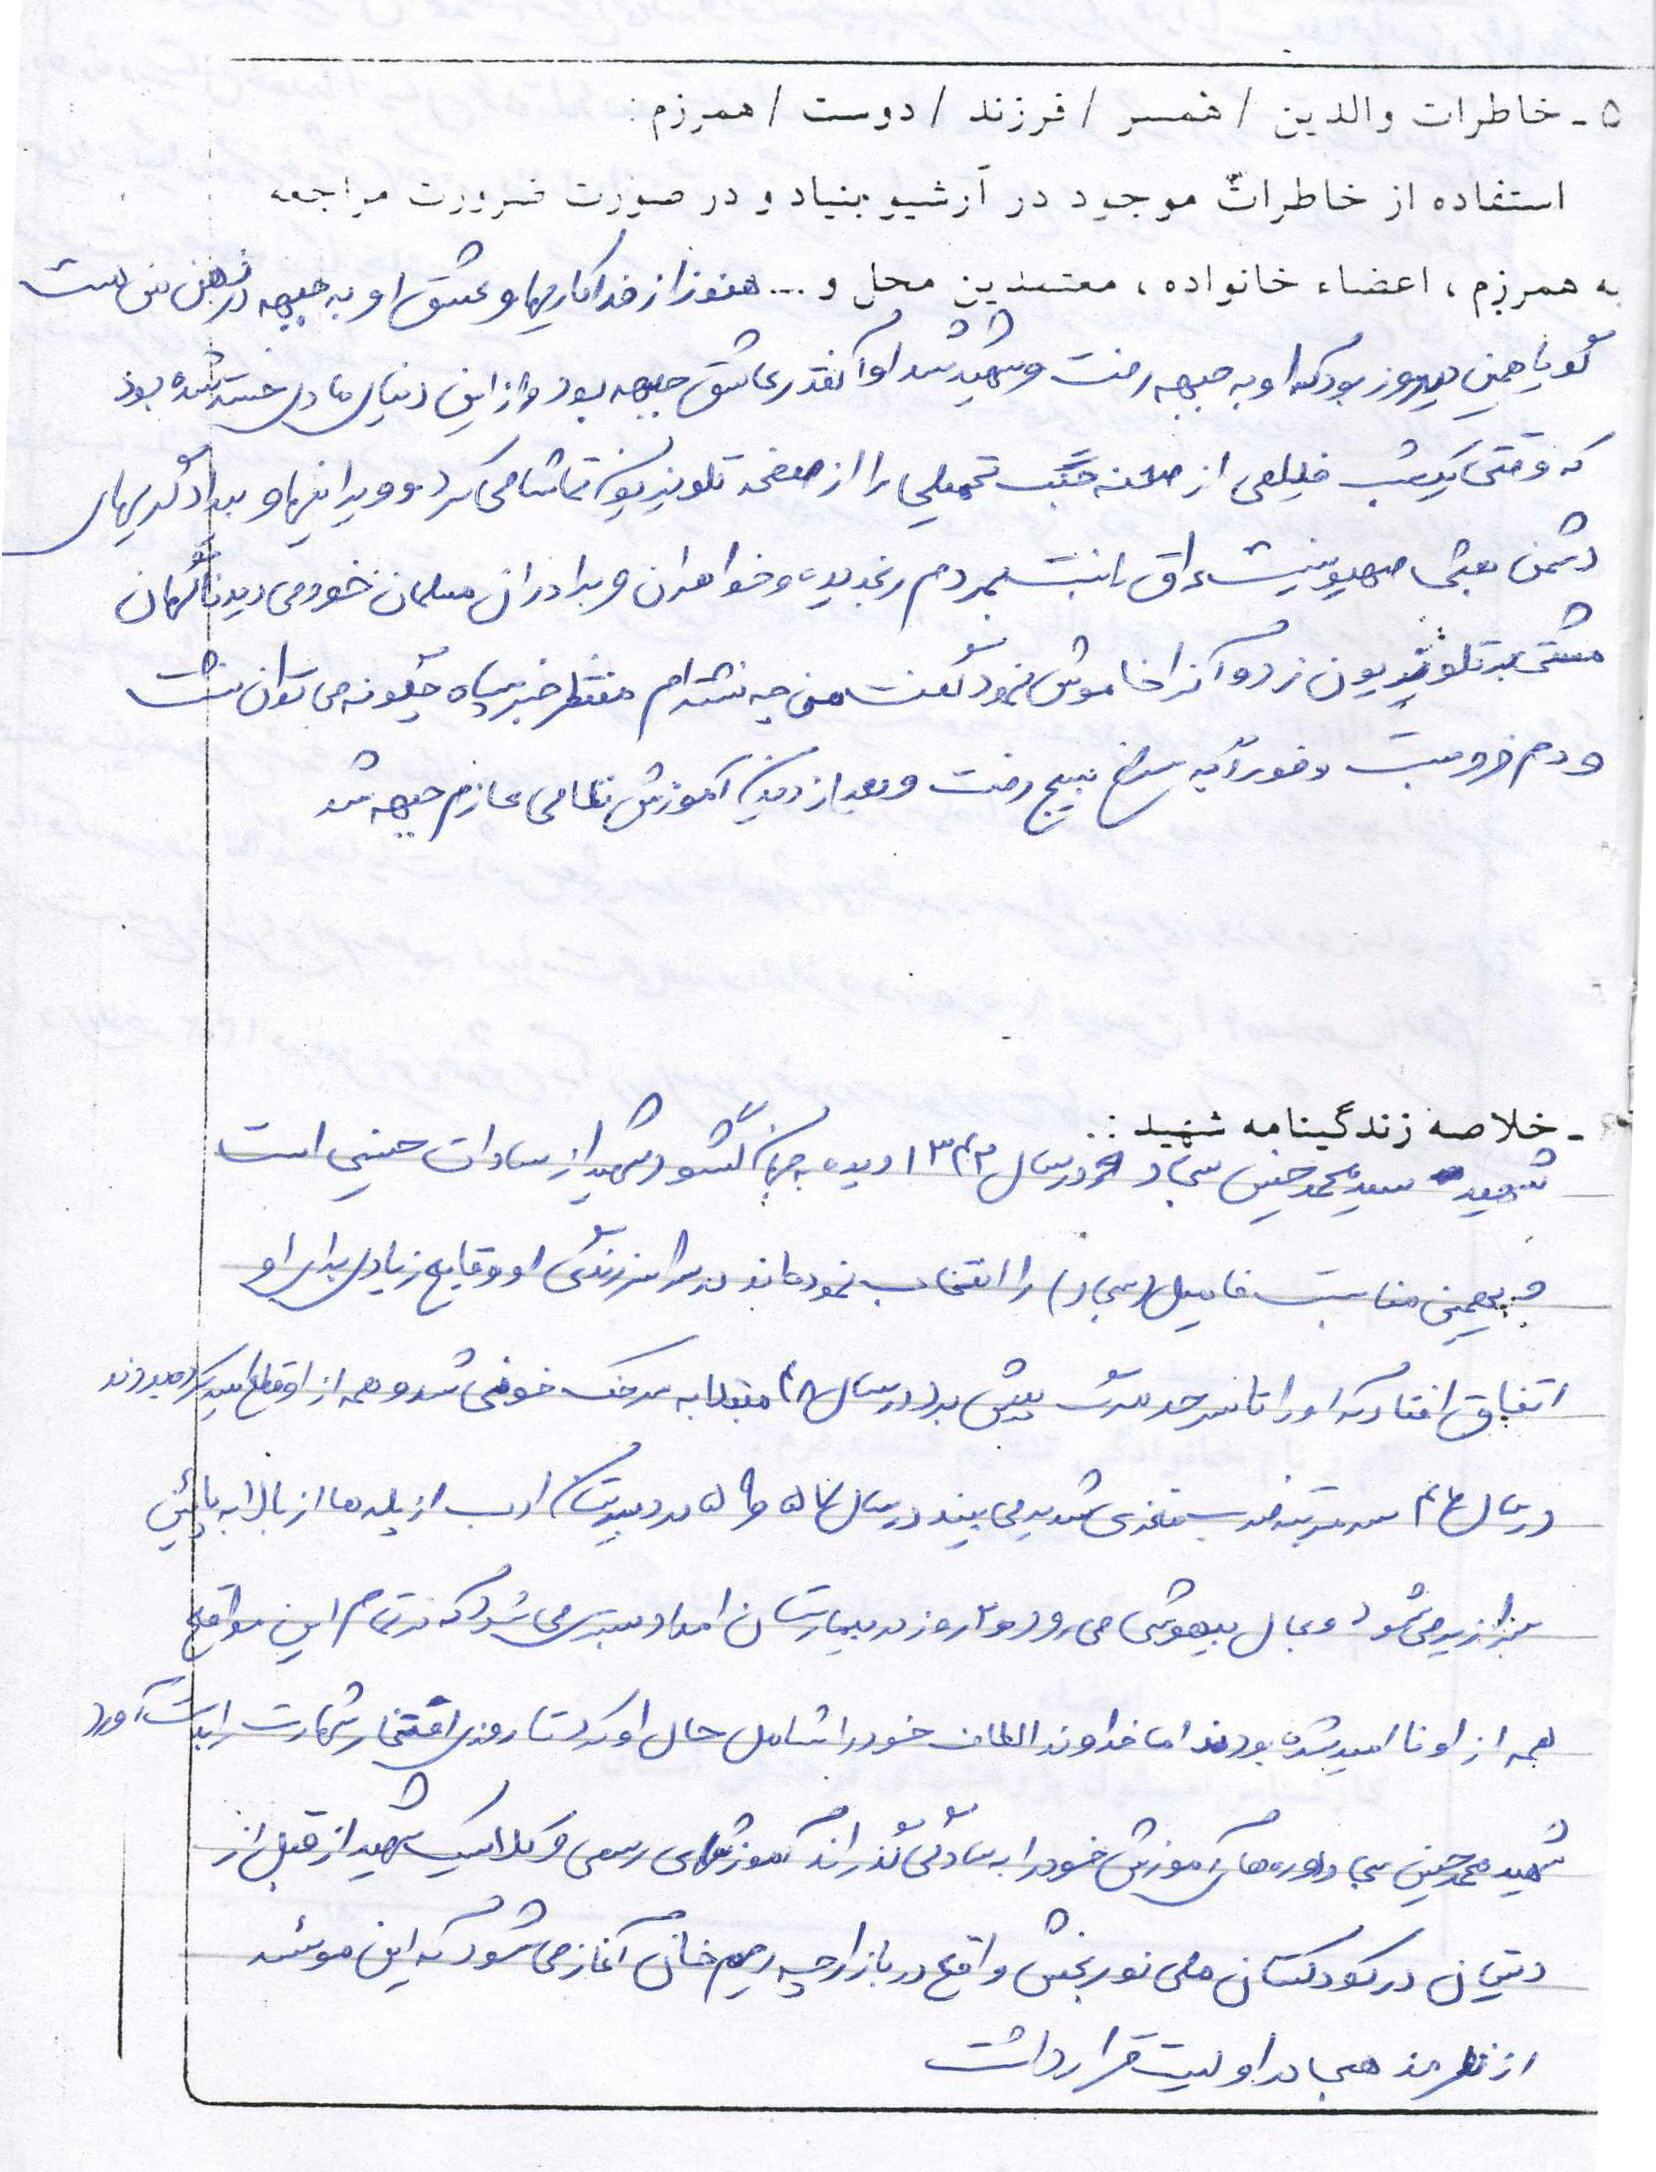 ۵ - خاطرات والدین / همسر / فرزند / دوست / همرزم :
استفاده از خاطرات موجود در آرشیو بنیاد و در صورت ضرورت مراجعه
به همرزم ، اعضاء خانواده ، معتمدین محل و .... هنوز از فداکاریها و عشق او به جبهه در ذهن من هست
گویا همین دیروز بود که او به جبهه رفت و شهید شد او آنقدر عاشق جبهه بود و از این دنیای مادی خسته شده بود
که وقتی یکشب فیلمی از صحنه جنگ تحمیلی را از صفحه تلویزیون تماشا می کرد و ویرانیها و بیدادگریهای
دشمن بعثی صهیونیست عراق نسبت بمردم رنجدیده و خواهران و برادران مسلمان خود می دید ناگهان
مشتی بر تلویزیون زد و آنرا خاموش نمود گفت من چه نشسته ام منتظر خبر سپاه چگونه می توان نشست
و دم فروبست و فوراً به بسیج رفت و بعد از دیدن آموزش نظامی عازم جبهه شد
- خلاصه زندگینامه شهید :
شهید سید محمد حسین سجاد در سال ۱۳۴۳ دیده به جهان گشود شهید از سادات حسینی است
و بهمین مناسبت فامیل (سجاد) را انتخاب نموده اند در سراسر زندگی او وقایع زیادی برای او
اتفاق افتاد که او را تا سر حد مرگ پیش برد در سال ۴۸ مبتلا به سرخک خونی شد و همه از او قطع امید کرده بودند
در سال ۴۹ ضربه مغزی شدید می بیند در سال ۵۷ در دبیرستان ادب از پله ها از بالا به پائین
سرازیر می شود و بحال بیهوشی می رود و ۲ روز در بیمارستان امداد بستری می شود که در تمام این مواقع
همه از او نا امید شده بودند اما خداوند الطاف خود را شامل حال او کرد تا روزی افتخار شهادت را بدست آورد
شهید محمد حسین سجاد دوره های آموزش خود را به سادگی گذراند آموزشهای رسمی و کلاسیک شهید از قبل از
دبستان در کودکستان ملی نوربخش واقع در بازارچه رحیم خان آغاز می شود که این موسسه
از نظر مذهبی در اولویت قرار داشت